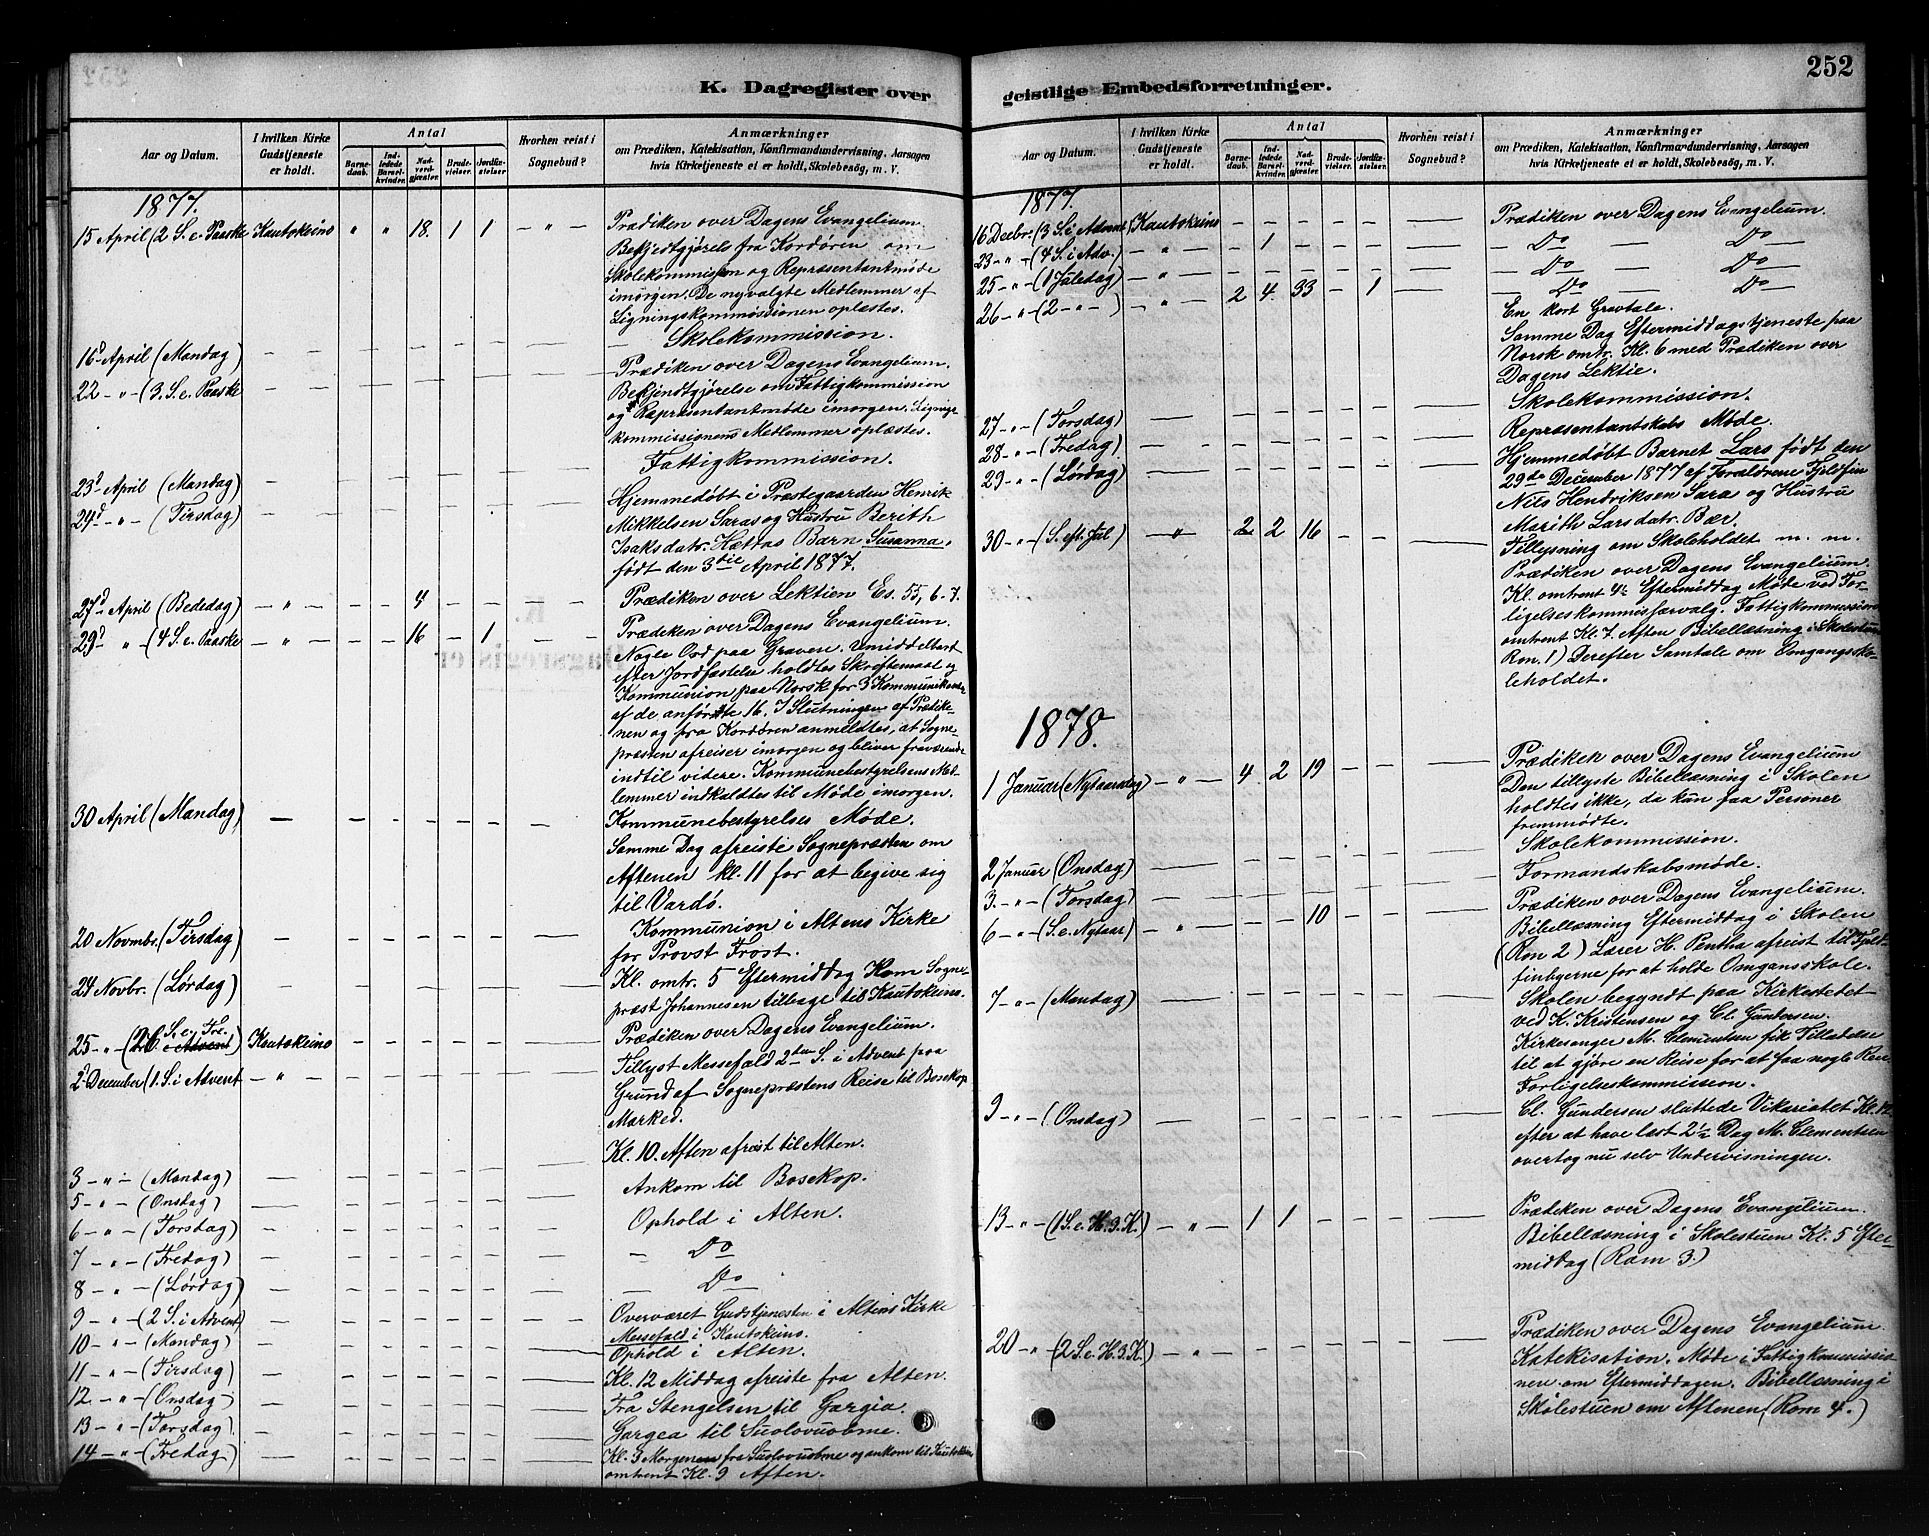 252
K. Dagregister over
Aar og Datum.
I hvilken Kirke Gudstjeneste er holdt.
Antal
Barnedaab.
Indledede Barselkvinder.
Nadverdgjæster.
Brudevielser.
Jordfæstelser.
Hvorhen reist i Sognebud?
Anmærkninger
om Prædiken, Katekisation, Konfirmandundervisning, Aarsagen
hvis Kirketjeneste et er holdt, Skolebesøg, m. V.
1877.
15 April (2 S. e. Paaske Kautokeino " " 18. 1 1 - " - Prædiken over Dagens Evangelium.
Bekjedtgjørels fra Kordøren om
Skolekommission og Repræsentantmøde
imorgen. De nyvalgte Medlemmer af
Ligningskommissionen oplæstes.
16d April (Mandag) Skolekommission.
22 - " - (3. S. e. Paaske Prædiken over Dagens Evangelium.
Bekjendtgjørelse om Fattigkommission
og Repræsentantmøde imorgen. Lignings-
kommissionens Medlemmer oplæstes.
23d April (Mandag) Fattigkommission.
24d - " - (Tirsdag) Hjemmedøbt i Præstegaarden Henrik
Mikkelsen Saras og Hustru Berith
Isaksdatr. Hættas Barn Susanna,
født den 3die April 1877.
27d April (Bededag) - " - 4 Prædiken over Lektien Es. 55, 6-7.
29d " (4 S. e. Paaske - " - 16 - 1 Prædiken over Dagens Evangelium.
Nogle Ord paa Graven. Umiddelbart
efter Jordfæstelse holdtes Skriftemaal og
Kommunion paa Norsk for 3 Kommunikanter
af de anførte 16. I Slutningen af Prædike-
nen og fra Kordøren anmeldtes, at Sogne-
præsten afreiser imorgen og bliver fraværende
indtil videre. Kommunebestyrelsens Med-
lemmer indkaldtes til Møde imorgen.
30 April (Mandag) Kommunebestyrelses Møde.
Samme Dag afreiste Sognepræsten om
Aftenen kl. 11 for at begive sig
til Vardø.
20 Novmbr. (Tirsdag) Kommunion i Altens Kirke
for Provst Frost.
24 Novbr. (Lørdag) Kl. omtr. 5 Eftermiddag kom Sogne-
præst Johannesen tilbage til Kautokeino.
25 - " - (26 S. e. Tre. i Advent) Kautokeino Prædiken over Dagens Evangelium.
2 December (1. S. i Advent - " - Tillyst Messefald 2den S. i Advent paa
Grund af Sognepræstens Reise til Bosekop
Marked.
Kl. 10. Aften afreist til Alten.
3 - " - (Mandag) Ankom til Bosekop.
5 - " - (Onsdag) Ophold i Alten.
6 - " - (Torsdag) Do
7 - " - (Fredag) Do
8 - " - (Lørdag)
9 - " - (2 S. i Advent) Overværet Gudstjenesten i Altens Kirke
Messefald i Kautokeino.
10 - " - (Mandag) Ophold i Alten.
11 - " - (Tirsdag) Kl. 12 Middag afreiste fra Alten.
12 - " - (Onsdag) Fra Stengelsen til Gargia.
13 - " - (Torsdag) Gargea til Suolovuobme.
14 - " - (Fredag) Kl. 3 Morgenen fra Suolovuobme og ankom til Kautokeino
omtrent Kl. 9 Aften.
geistlige Embedsforretninger.
Aar og Datum.
I hvilken Kirke Gudstjeneste er holdt.
Antal
Barnedaab.
Indledede Barselkvinder.
Nadverdgjæster.
Brudevielser.
Jordfæstelser.
Hvorhen reist i Sognebud?
Anmærkninger
om Prædiken, Katekisation, Konfirmandundervisning, Aarsagen
hvis Kirketjeneste et er holdt, Skolebesøg, m. V.
1877.
16 Decbr. (3 S. i Advent) Kautokeino Prædiken over Dagens Evangelium.
23 - " - (4 S. i Adv.) - " - - 1 Do Do
25 - " - (1 Juledag) - " - Do Do
26 - " - (2 - " - ) - " - 2 4 33 - 1 Do Do
En kort Gravtale.
Samme Dag Eftermiddagstjeneste paa
Norsk omtr. Kl. 6 med Prædiken over
Dagens Lektie.
27 - " - (Torsdag) Skolekommission.
28 - " - (Fredag) Repræsentantskabs Møde.
29 - " - (Lørdag) Hjemmedøbt Barnet Lars født den
29de December 1877 af Forældrene Fjeldfin
Nils Hendriksen Sara og Hustru
Marith Larsdatr. Bær.
30 - " - (S. eft. Jul) - " - 2 2 16 Tillysning om Skoleholdet m. m.
Prædiken over Dagens Evangelium.
Kl. omtrent 4½ Eftermiddag Møde ved For-
ligelseskommisærvalg. Fattigkommission
omtrent Kl. 7. Aften Bibellæsning i Skolestuen
Rom. 1) Derefter Samtale om Omgangsko-
leholdet.
1878.
1 Januar (Nytaarsdag) - " - 4 2 19 Prædiken over Dagens Evangelium
Den tillyste Bibellæsning i Skolen
holdtes ikke, da kun faa Personer
fremmødte.
2 Januar (Onsdag) Skolekommission.
3. - " - (Torsdag) Formandskabsmøde.
6 - " - (S. e. Nytaar) - " - 10 Prædiken over Dagens Evangelium.
Bibellæsning Eftermiddag i Skolen
(Rom 2) Lærer H. Pentha afreist til Fjeld-
finbyerne for at holde Omgansskole.
7 - " - (Mandag) Skolen begyndt paa Kirkestedet
ved K. Kristensen og Cl. Gundersen.
Kirkesanger M. Clementsen fik Tilladelse
til at gjøre en Reise for at faa nogle Ren
Forligelseskommission.
9 - " - (Onsdag) Cl. Gundersen sluttede Vikariatet Kl. 12
efter at have læst 2½ Dag M. Clementsen
overtog nu selv Undervisningen.
13 - " - (1 S. e. H. 3. K.) - " - 1 1 Prædiken over Dagens Evangelium.
Bibellæsning i Skolestuen Kl. 5 Efter-
middag (Rom 3.)
20 - " - (2 S. e. H. 3. K.) - " - Prædiken over Dagens Evangelium
Katekisation. Møde i Fattigkommissio-
nen om Eftermiddagen. Bibellæsning i
Skolestuen om Aftenen (Rom 4.)